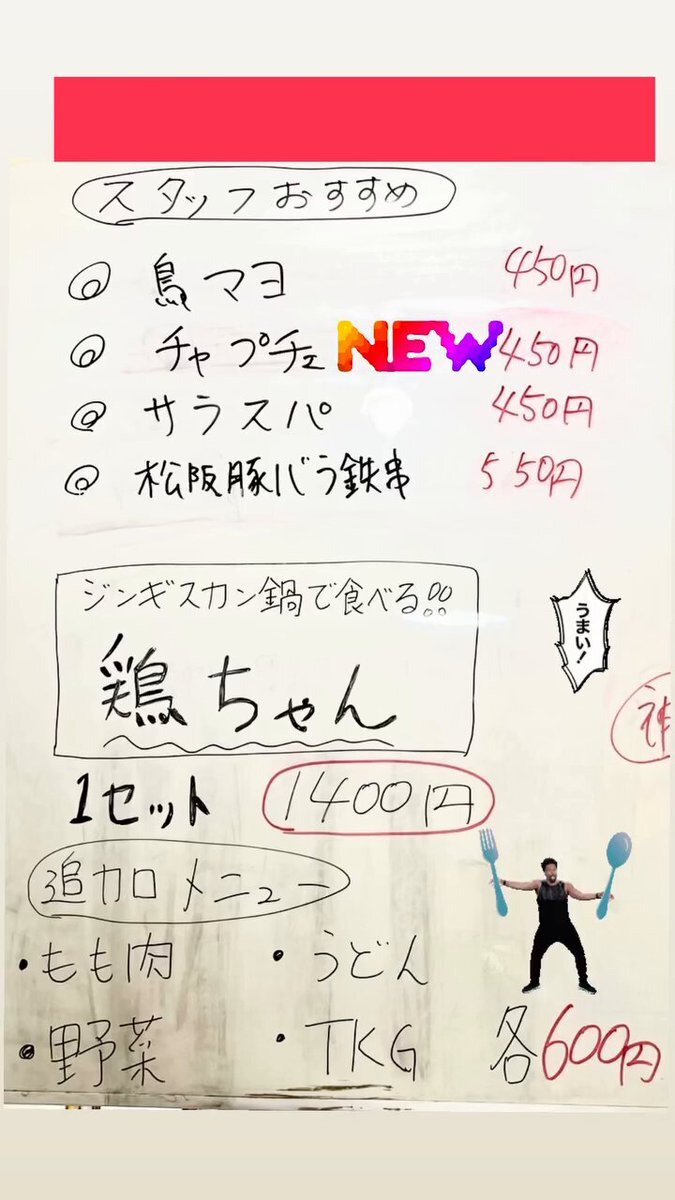 スタッフおすすめ
◎ 鳥マヨ 450円
◎ チャプチェ NEW 450円
◎ サラスパ 450円
◎ 松阪豚バラ鉄串 550円
ジンギスカン鍋で食べる!!
鶏ちゃん
うまい!
神
1セット 1400円
追加メニュー
・もも肉 ・うどん
・野菜 ・TKG 各600円